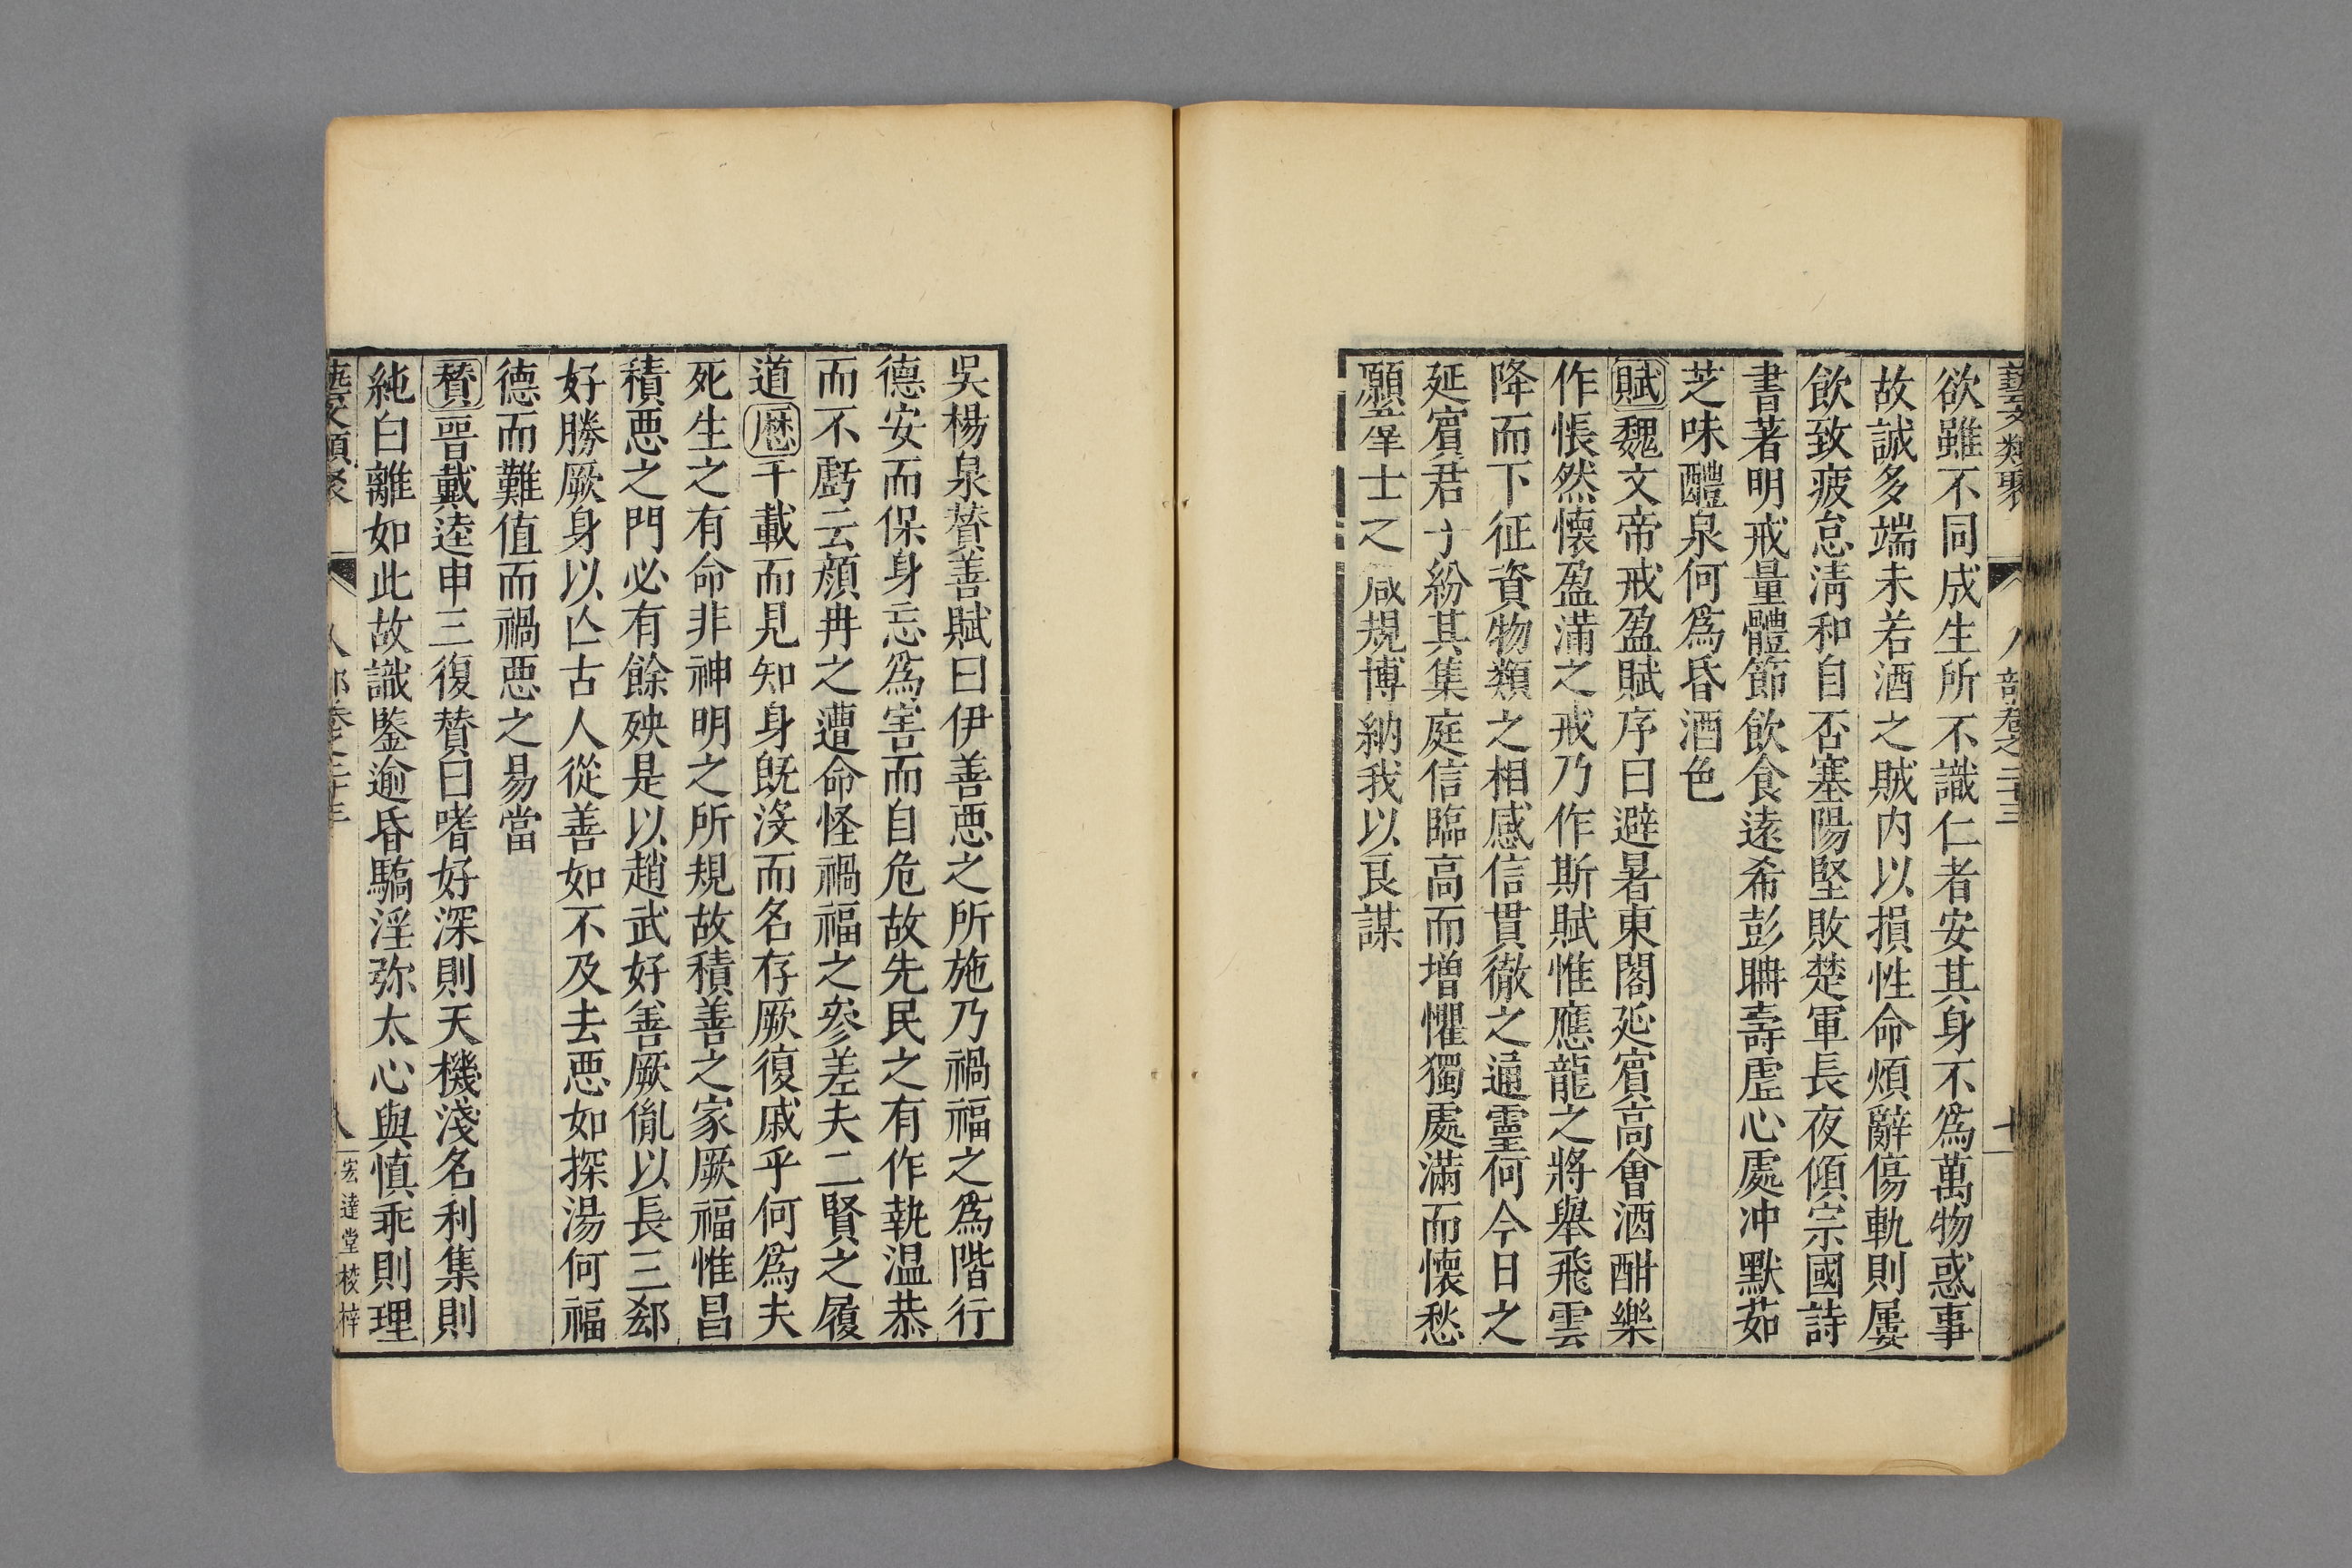 藝文類聚 人部卷之二十三 七
欲雖不同成生所不識仁者安其身不爲萬物惑事
故誠多端未若酒之賊内以損性命煩辭傷軌則屢
飲致疲怠淸和自否塞陽堅敗楚軍長夜傾宗國詩
書著明戒量體節飲食遠希彭聃壽虛心處冲默茹
芝味醴泉何爲昏酒色
賦魏文帝戒盈賦序曰避暑東閣延賓高會酒酣樂
作悵然懷盈滿之戒乃作斯賦惟應龍之將舉飛雲
降而下征資物類之相感信貫徹之通靈何今日之
延賓君子紛其集庭信臨高而增懼獨處滿而懷愁
願羣士之咸規博納我以良謀
吳楊泉賛善賦曰伊善惡之所施乃禍福之爲階行
德安而保身忘爲害而自危故先民之有作執温恭
而不虧云顔冉之遭命怪禍福之參差夫二賢之履
道歷千載而見知身旣沒而名存厥復戚乎何爲夫
死生之有命非神明之所規故積善之家厥福惟昌
積惡之門必有餘殃是以趙武好善厥胤以長三郄
好勝厥身以亾古人從善如不及去惡如探湯何福
德而難值而禍惡之易當
賛晉戴逵申三復賛曰嗜好深則天機淺名利集則
純白離如此故識鑒逾昏驕淫弥太心與慎乖則理
藝文類聚 人部卷之二十三 八 宏達堂校梓